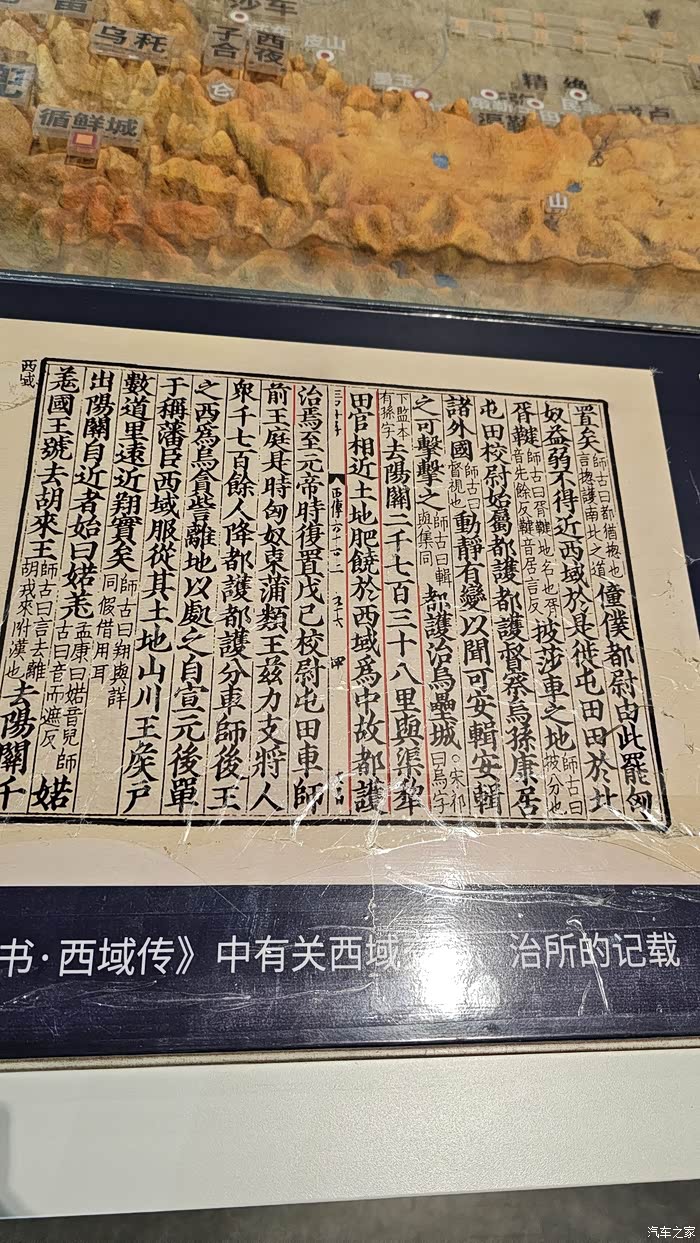 乌秅
子合
西夜
皮山
精绝
循鲜城
山
西域
置矣師古曰都猶揔也言揔護南北之道僮僕都尉由此罷匈
奴益弱不得近西域於是徙屯田田於北
胥鞬師古曰胥鞬地名也胥音先餘反鞬音居言反披莎車之地師古曰披分也
屯田校尉始屬都護都護督察烏孫康居
諸外國師古曰督視也動靜有變以聞可安輯安輯
之可擊擊之師古曰輯與集同都護治烏壘城○宋祁曰烏字
下監本有孫字去陽關二千七百三十八里與渠犂
田官相近土地肥饒於西域爲中故都護
治焉至元帝時復置戊己校尉屯田車師
前王庭是時匈奴東蒲類王兹力支將人
衆千七百餘人降都護都護分車師後王
之西爲烏貪訾離地以處之自宣元後單
于稱藩臣西域服從其土地山川王侯戶
數道里遠近翔實矣師古曰翔與詳同假借用耳
出陽關自近者始曰婼羌孟康曰婼音兒師古曰音而遮反婼
羌國王號去胡來王師古曰言去離胡戎來附漢也去陽關千
书·西域传》中有关西域
治所的记载
汽车之家